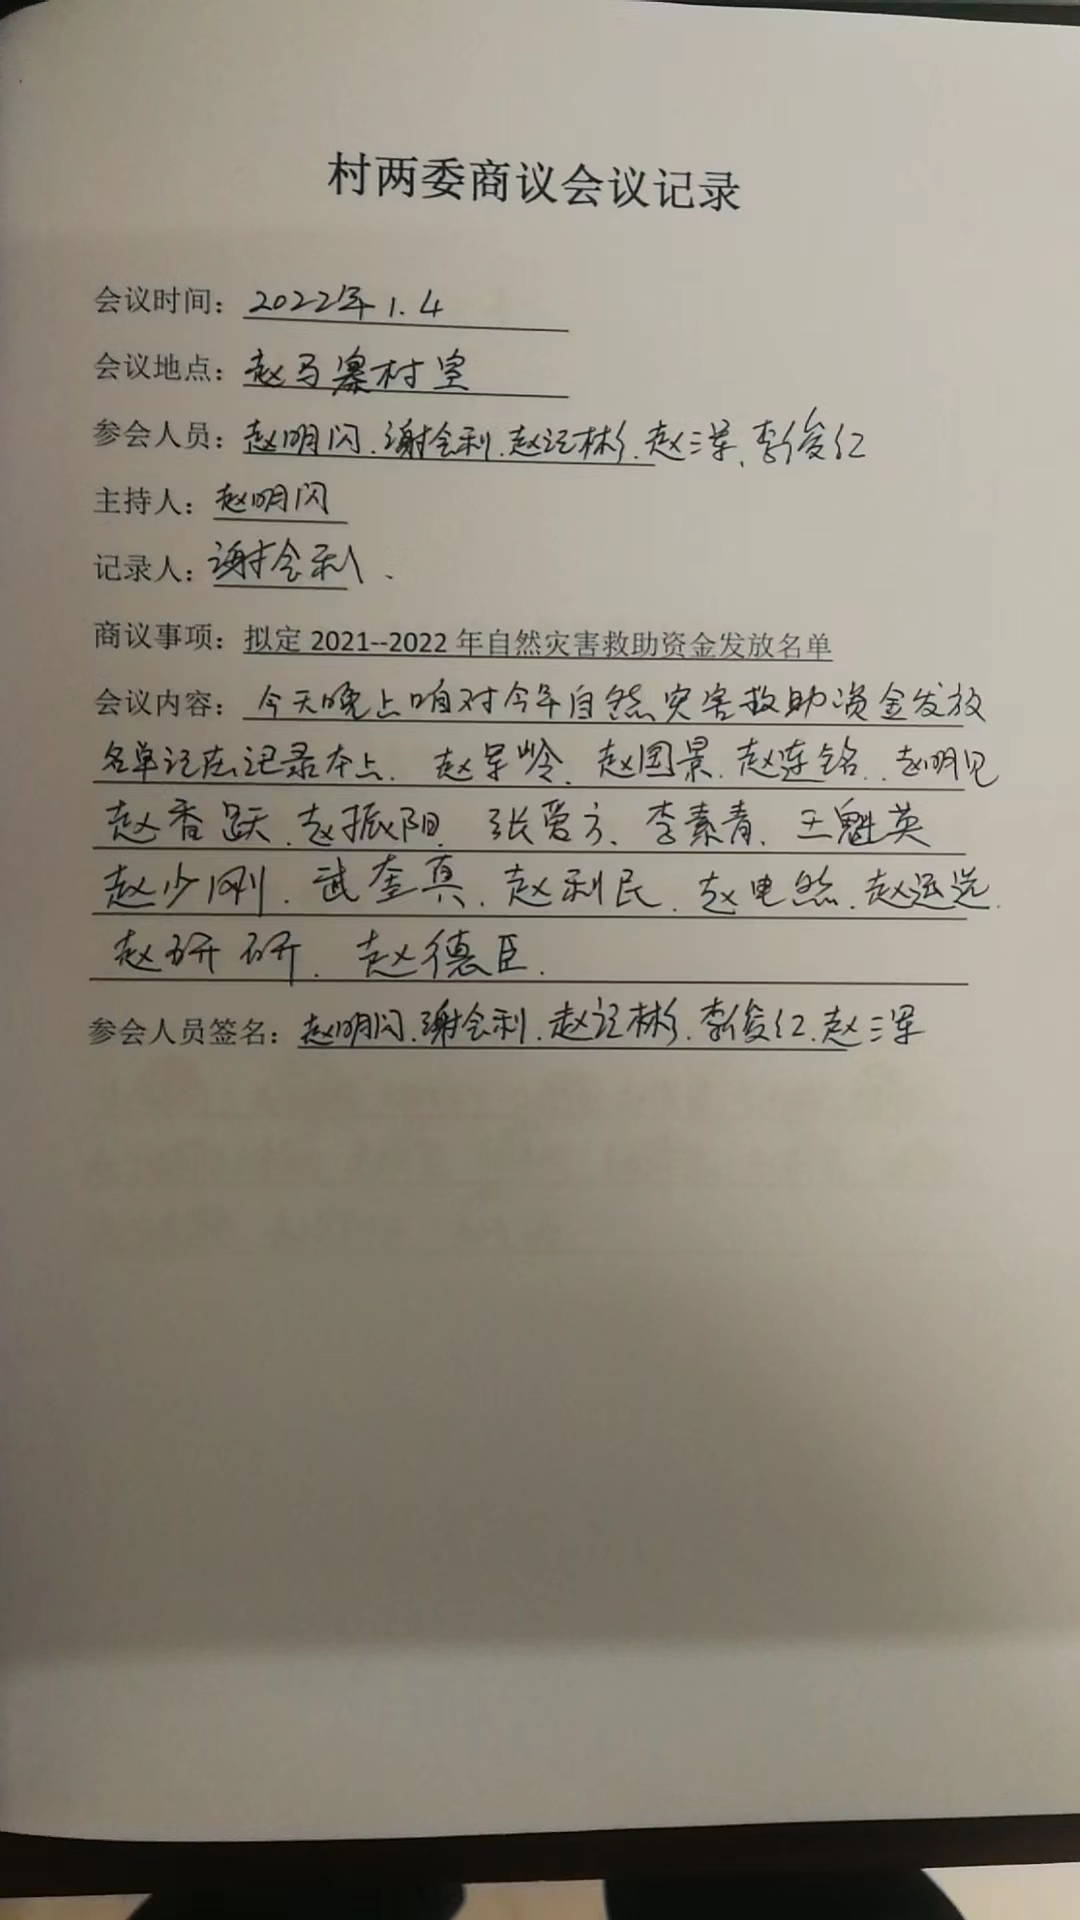 村两委商议会议记录
会议时间：2022年1.4
会议地点：赵马寨村室
参会人员：赵明闪.谢会利.赵记彬.赵三军、李俊红
主持人：赵明闪
记录人：谢会利、
商议事项：拟定2021--2022年自然灾害救助资金发放名单
会议内容：今天晚上咱对今年自然灾害救助资金发放
名单记在记录本上、赵军岭、赵国景、赵连铭、赵明见
赵香跃、赵振阳、张爱方、李素青、王魁英
赵少刚、武奎真、赵利民、赵电然、赵运选.
赵研研、赵德臣.
参会人员签名：赵明闪.谢会利.赵记彬.李俊红.赵三军